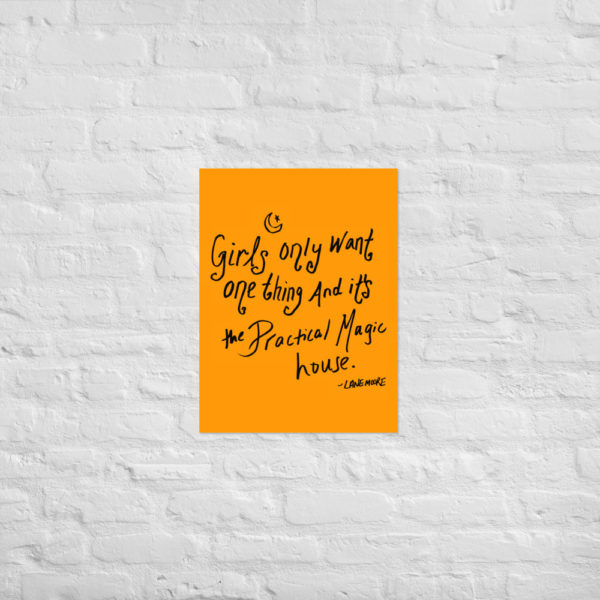 Girls only want
one thing And it's
the Practical Magic
house.
-LANE MOORE